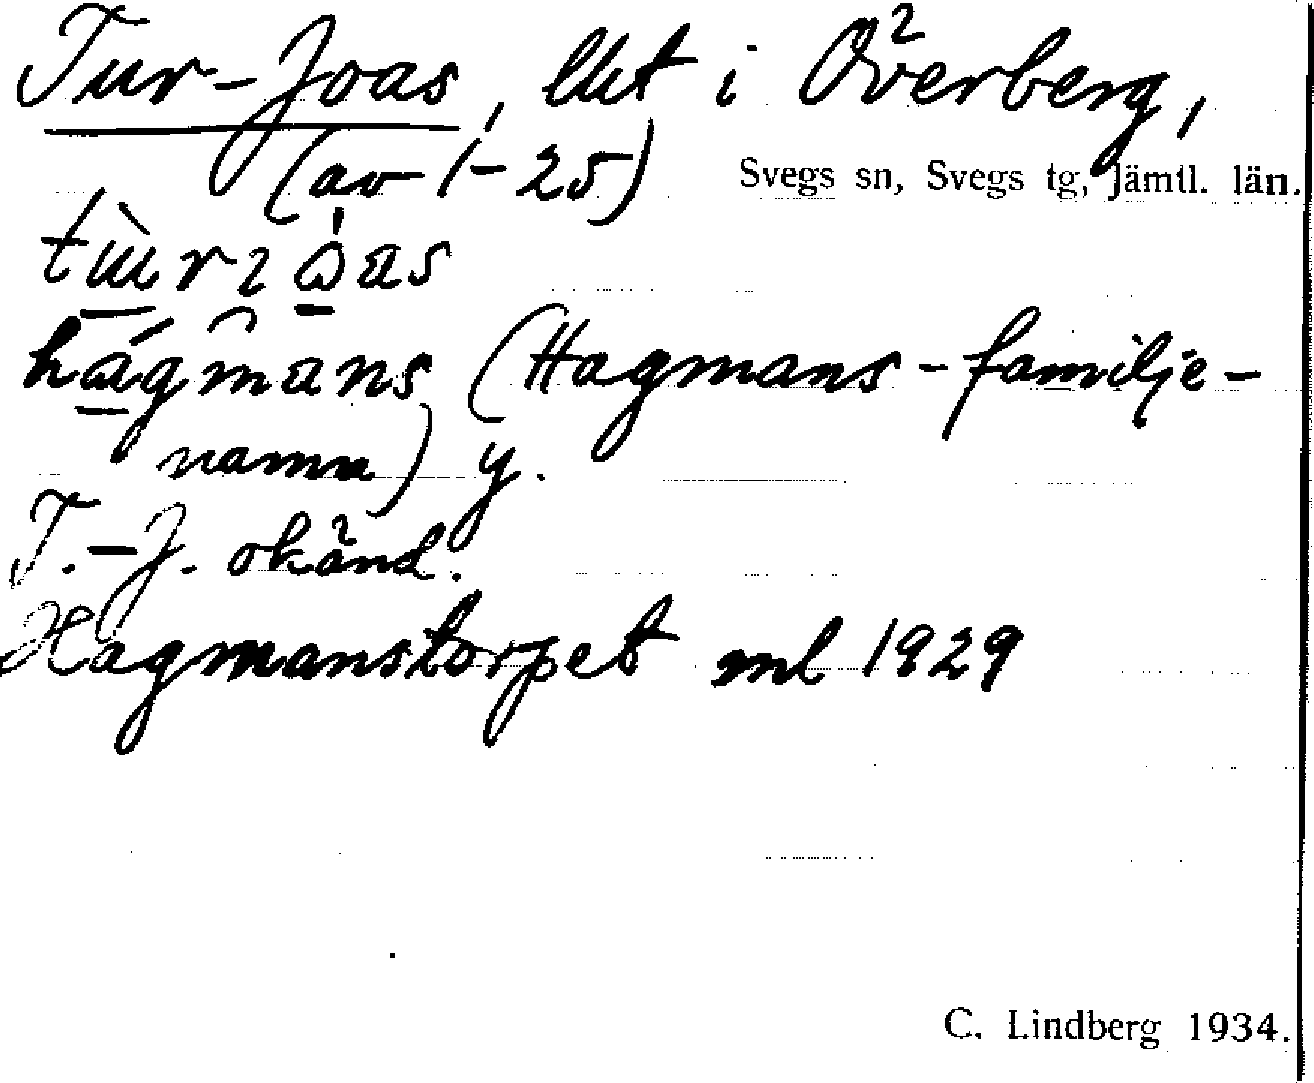 Tur-Joas, lht i Överberg,
(av 1-25) Svegs sn, Svegs tg, Jämtl. län.
hágmans (Hagmans-familje-
namn) y.
T.-J. okänd.
Hagmanstorpet ml 1929
C. Lindberg 1934.